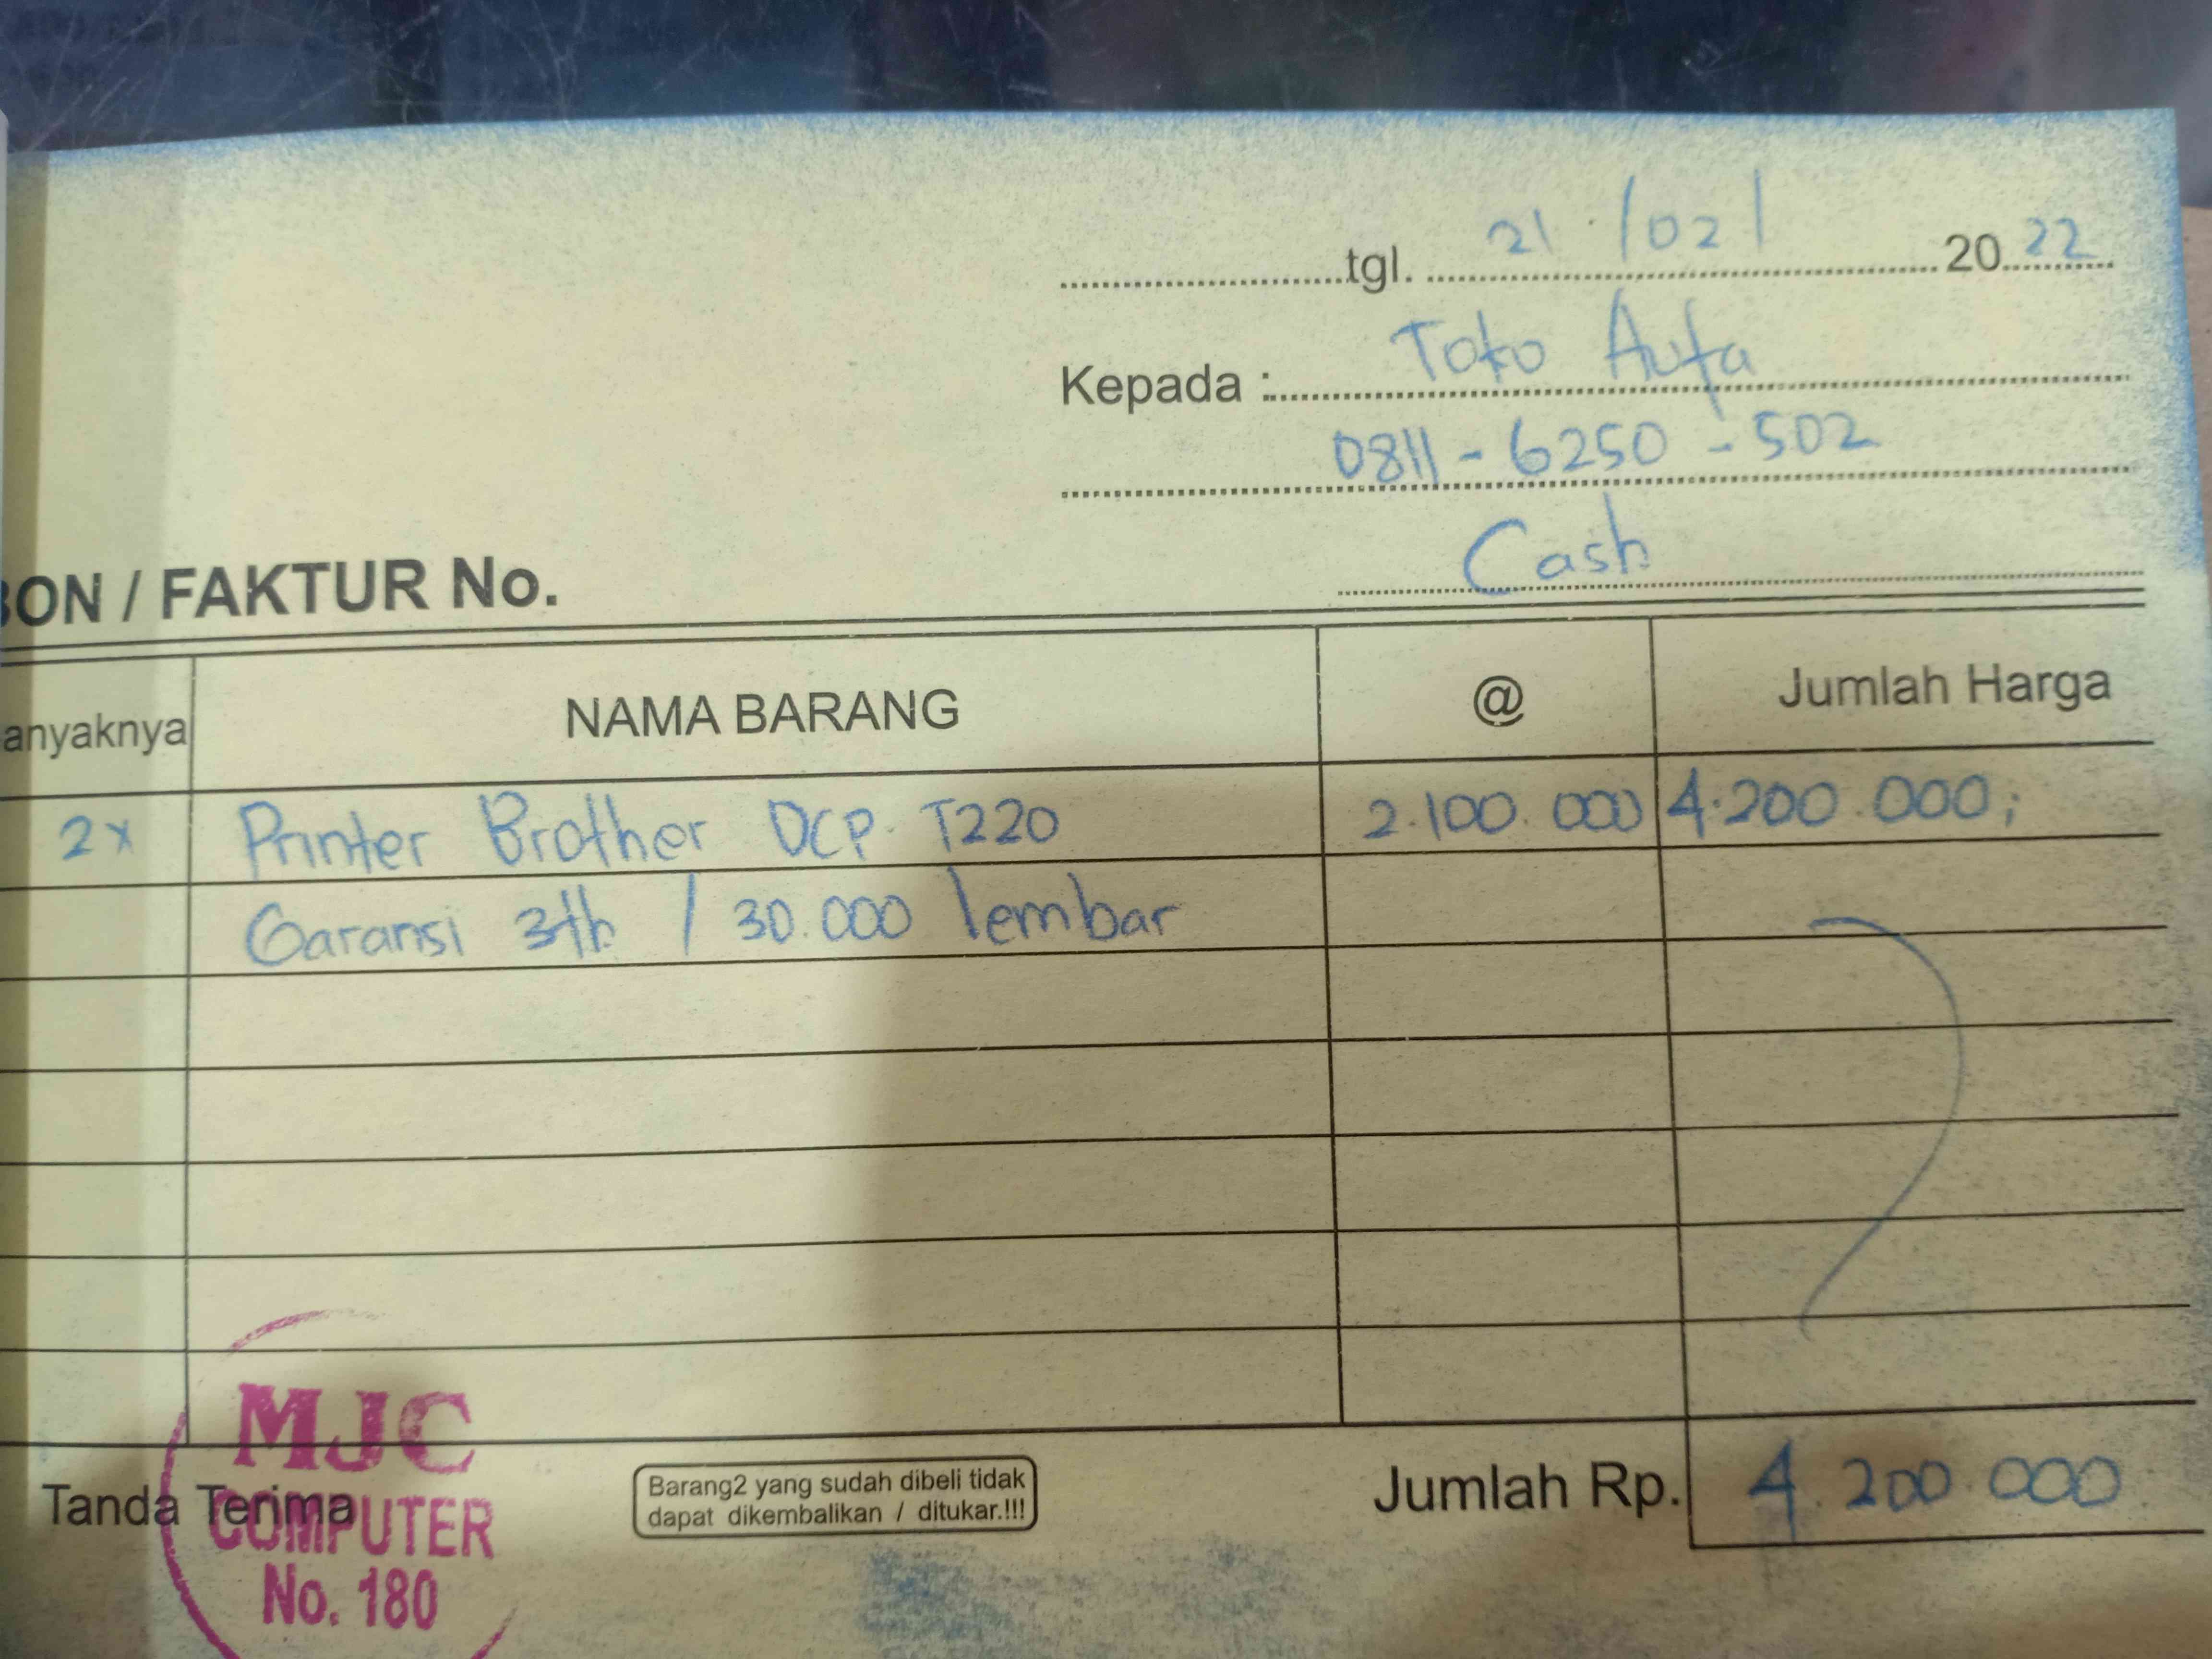 tgl. 21 / 02 / 20 22
Kepada : Toko Aufa
0811 - 6250 - 502
BON / FAKTUR No. Cash
anyaknya NAMA BARANG @ Jumlah Harga
2x Printer Brother DCP. T220 2.100.000 4.200.000;
Garansi 3th / 30.000 lembar
Tanda Terima Barang2 yang sudah dibeli tidak Jumlah Rp. 4.200.000
dapat dikembalikan / ditukar.!!!
MJC
COMPUTER
No. 180